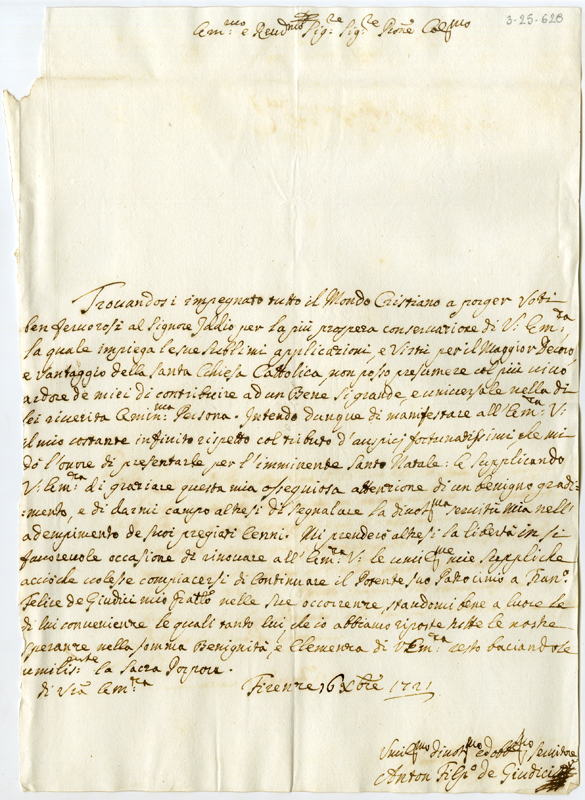 3-25-628
Em:mo e Reudmo Sig:re Sig:re Prone Colmo
Trouandosi impegnato tutto il Mondo Cristiano a porger Voti
ben feruorosi al Signore Iddio per la più prospera conseruazione di V: Em:za,
la quale impiega le sue sublimi applicazioni, e Virtù per il Maggior Decoro
e Vantaggio della Santa Chiesa Cattolica, non posso presumere col più viuo
ardore de miei di contribuire ad un Bene sì grande, e uniuersale nella di
lei riuerita Emin:ma Persona. Intendo dunque di manifestare all'Em:za V:
il mio costante infinito rispetto col tributo d'auspicj fortunatissimi che mi
dò l'onore di presentarle per l'imminente Santo Natale: e supplicando
V: Em:za di graziare questa mia ossequiosa attenzione di un benigno gradi-
:mento, e di darmi campo altresì di segnalare la diuotma seruitù mia nell'
adempimento de suoi pregiati Cenni. Mi prenderò altresì la libertà in sì
fauoreuole occasione di rinouare all'Em:za V: le umilme mie suppliche
acciòche volesse compiacersi di Continuare il Potente suo Patrocinio a Franco
Felice de Giudici mio fratto nelle sue occorenze standomi bene a cuore le
di lui conuenienze le quali tanto lui, che io abbiamo riposte tutte le nostre
speranze nella somma Benignità, e Clemenza di V Em:za resto baciandole
umilis:ente la Sacra Porpora.
di Vra Em:za Firenze 16 Xbre 1721
Umilmo diuotmo ed obbmo seruitore
Anton Filpo de Giudici